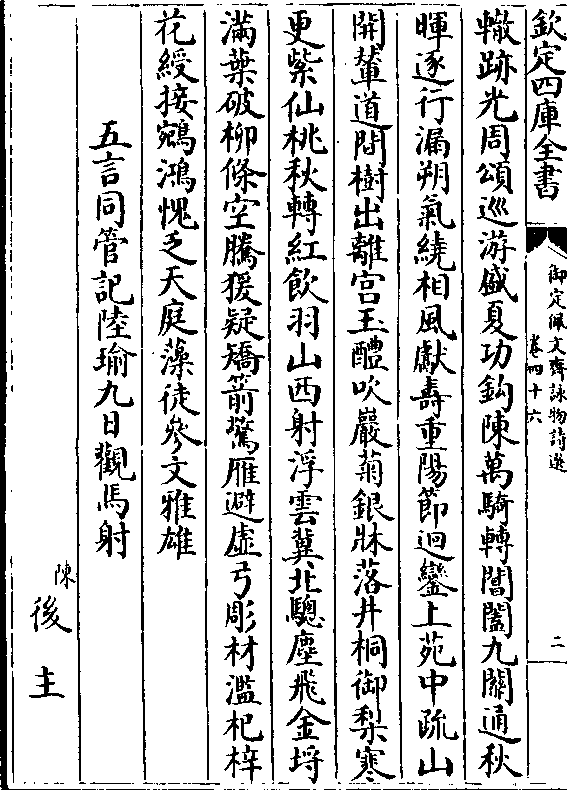 欽定四庫全書
御定佩文齋詠物詩選
卷四十六
二
轍跡光周頌巡游盛夏功鈎陳萬騎轉閶闔九關通秋
暉逐行漏朔氣繞相風獻壽重陽節迴鑾上苑中疏山
開輦道間樹出離宮玉醴吹巖菊銀牀落井桐御梨寒
更紫仙桃秋轉紅飲羽山西射浮雲冀北驄塵飛金埒
滿葉破柳條空騰猨疑矯箭驚雁避虛弓彫材濫杞梓
花綬接鵷鴻愧乏天庭藻徒參文雅雄
五言同管記陸瑜九日觀馬射
陳
後主